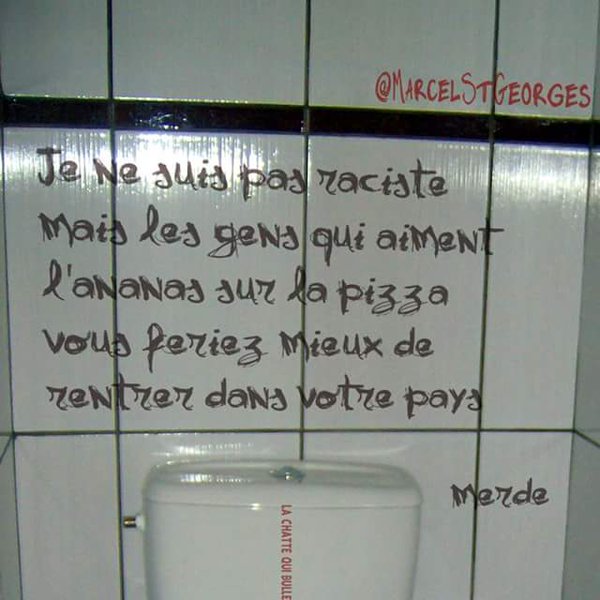 @MarcelStGeorges
Je ne suis pas raciste
mais les gens qui aiment
l'ananas sur la pizza
vous feriez mieux de
rentrer dans votre pays
merde
LA CHATTE QUI BULLE